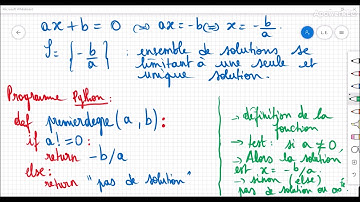 ax + b = 0 ⟺ ax = -b ⟺ x = -b/a
S = { -b/a } : ensemble de solutions se
limitant à une seule et
unique solution.
Programme Python:
def premierdegre(a, b):
if a != 0:
return -b/a
else:
return "pas de solution"
→ définition de la
fonction
→ test: si a ≠ 0,
→ Alors la solution
est x = -b/a
→ sinon (else)
pas de solution ou ∞